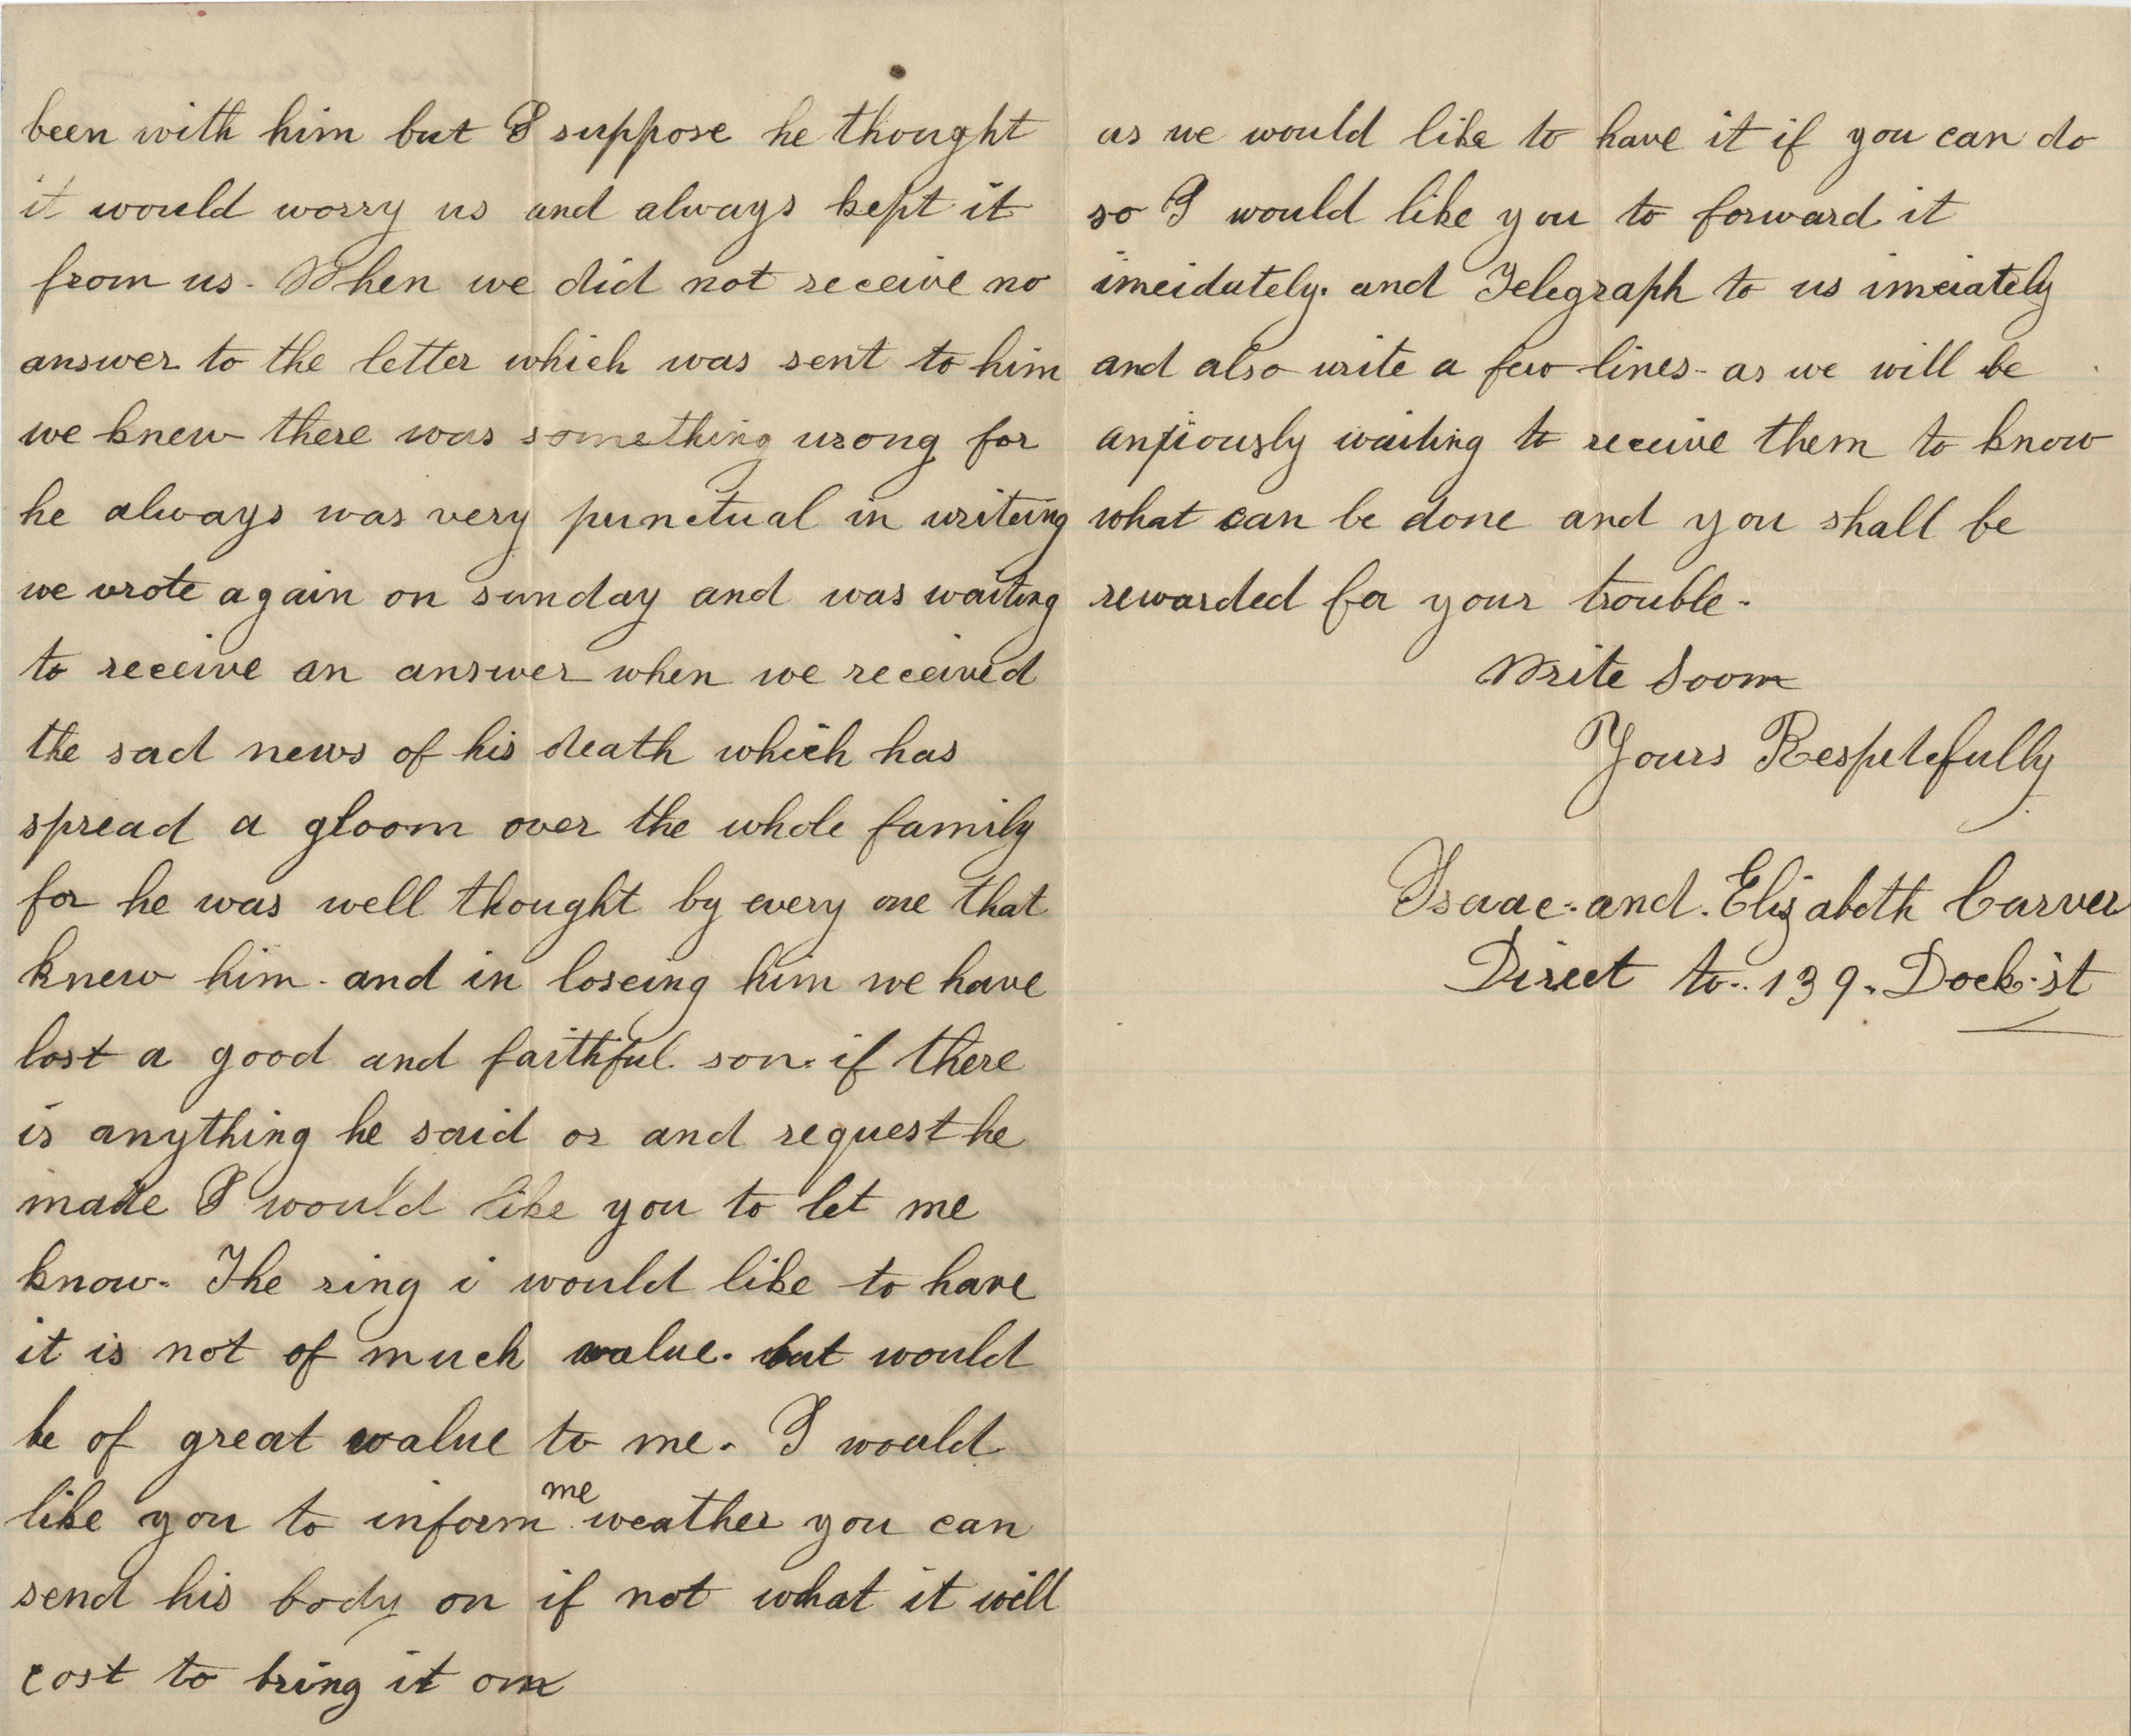 been with him but I suppose he thought
it would worry us and always kept it
from us. When we did not receive no
answer to the letter which was sent to him
we knew there was something wrong for
he always was very punctual in writeing
we wrote again on sunday and was waiting
to receive an answer when we received
the sad news of his death which has
spread a gloom over the whole family
for he was well thought by every one that
knew him. and in loseing him we have
lost a good and faithful son. if there
is anything he said or and request he
made I would like you to let me
know. The ring i would like to have
it is not of much value. but would
be of great value to me. I would
like you to inform me weather you can
send his body on if not what it will
cost to bring it on
as we would like to have it if you can do
so I would like you to forward it
imeidutely. and Telegraph to us imeiately
and also write a few lines - as we will be
anxiously waiting to receive them to know
what can be done and you shall be
rewarded for your trouble.
Write Soon
Yours Respetefully
Isaac. and. Elizabeth Carver
Direct to.. 139. Dock. st